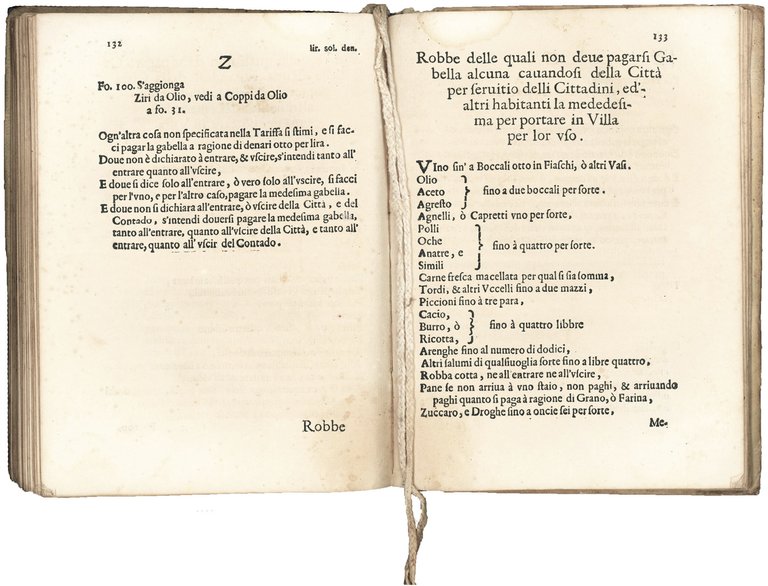 132
lir. sol. den.
Z
Fo. 100. S'aggionga
Ziri da Olio, vedi a Coppi da Olio
a fo. 31.
Ogn'altra cosa non specificata nella Tariffa si stimi, e si fac-
ci pagar la gabella a ragione di denari otto per lira.
Doue non è dichiarato à entrare, & vscire, s'intendi tanto all'
entrare quanto all'vscire,
E doue si dice solo all'entrare, ò vero solo all'vscire, si facci
per l'vno, e per l'altro caso, pagare la medesima gabella.
E doue non si dichiara all'entrare, ò vscire della Città, e del
Contado, s'intendi douersi pagare la medesima gabella,
tanto all'entrare, quanto all'vscire della Città, e tanto all'
entrare, quanto all'vscir del Contado.
Robbe
133
Robbe delle quali non deue pagarsi Ga-
bella alcuna cauandosi della Città
per seruitio delli Cittadini, ed'-
altri habitanti la mededesi-
ma per portare in Villa
per lor vso.
VIno sin' a Boccali otto in Fiaschi, ò altri Vasi.
Olio
Aceto } sino a due boccali per sorte.
Agresto
Agnelli, ò Capretti vno per sorte,
Polli
Oche } sino à quattro per sorte.
Anatre, e
Simili
Carne fresca macellata per qual si sia somma,
Tordi, & altri Vccelli sino a due mazzi,
Piccioni sino à tre para,
Cacio,
Burro, ò } sino à quattro libbre
Ricotta,
Arenghe sino al numero di dodici,
Altri salumi di qualsiuoglia sorte sino a libre quattro,
Robba cotta, ne all'entrare ne all'vscire,
Pane se non arriua à vno staio, non paghi, & arriuando
paghi quanto si paga à ragione di Grano, ò Farina,
Zuccaro, e Droghe sino a oncie sei per sorte,
Me-